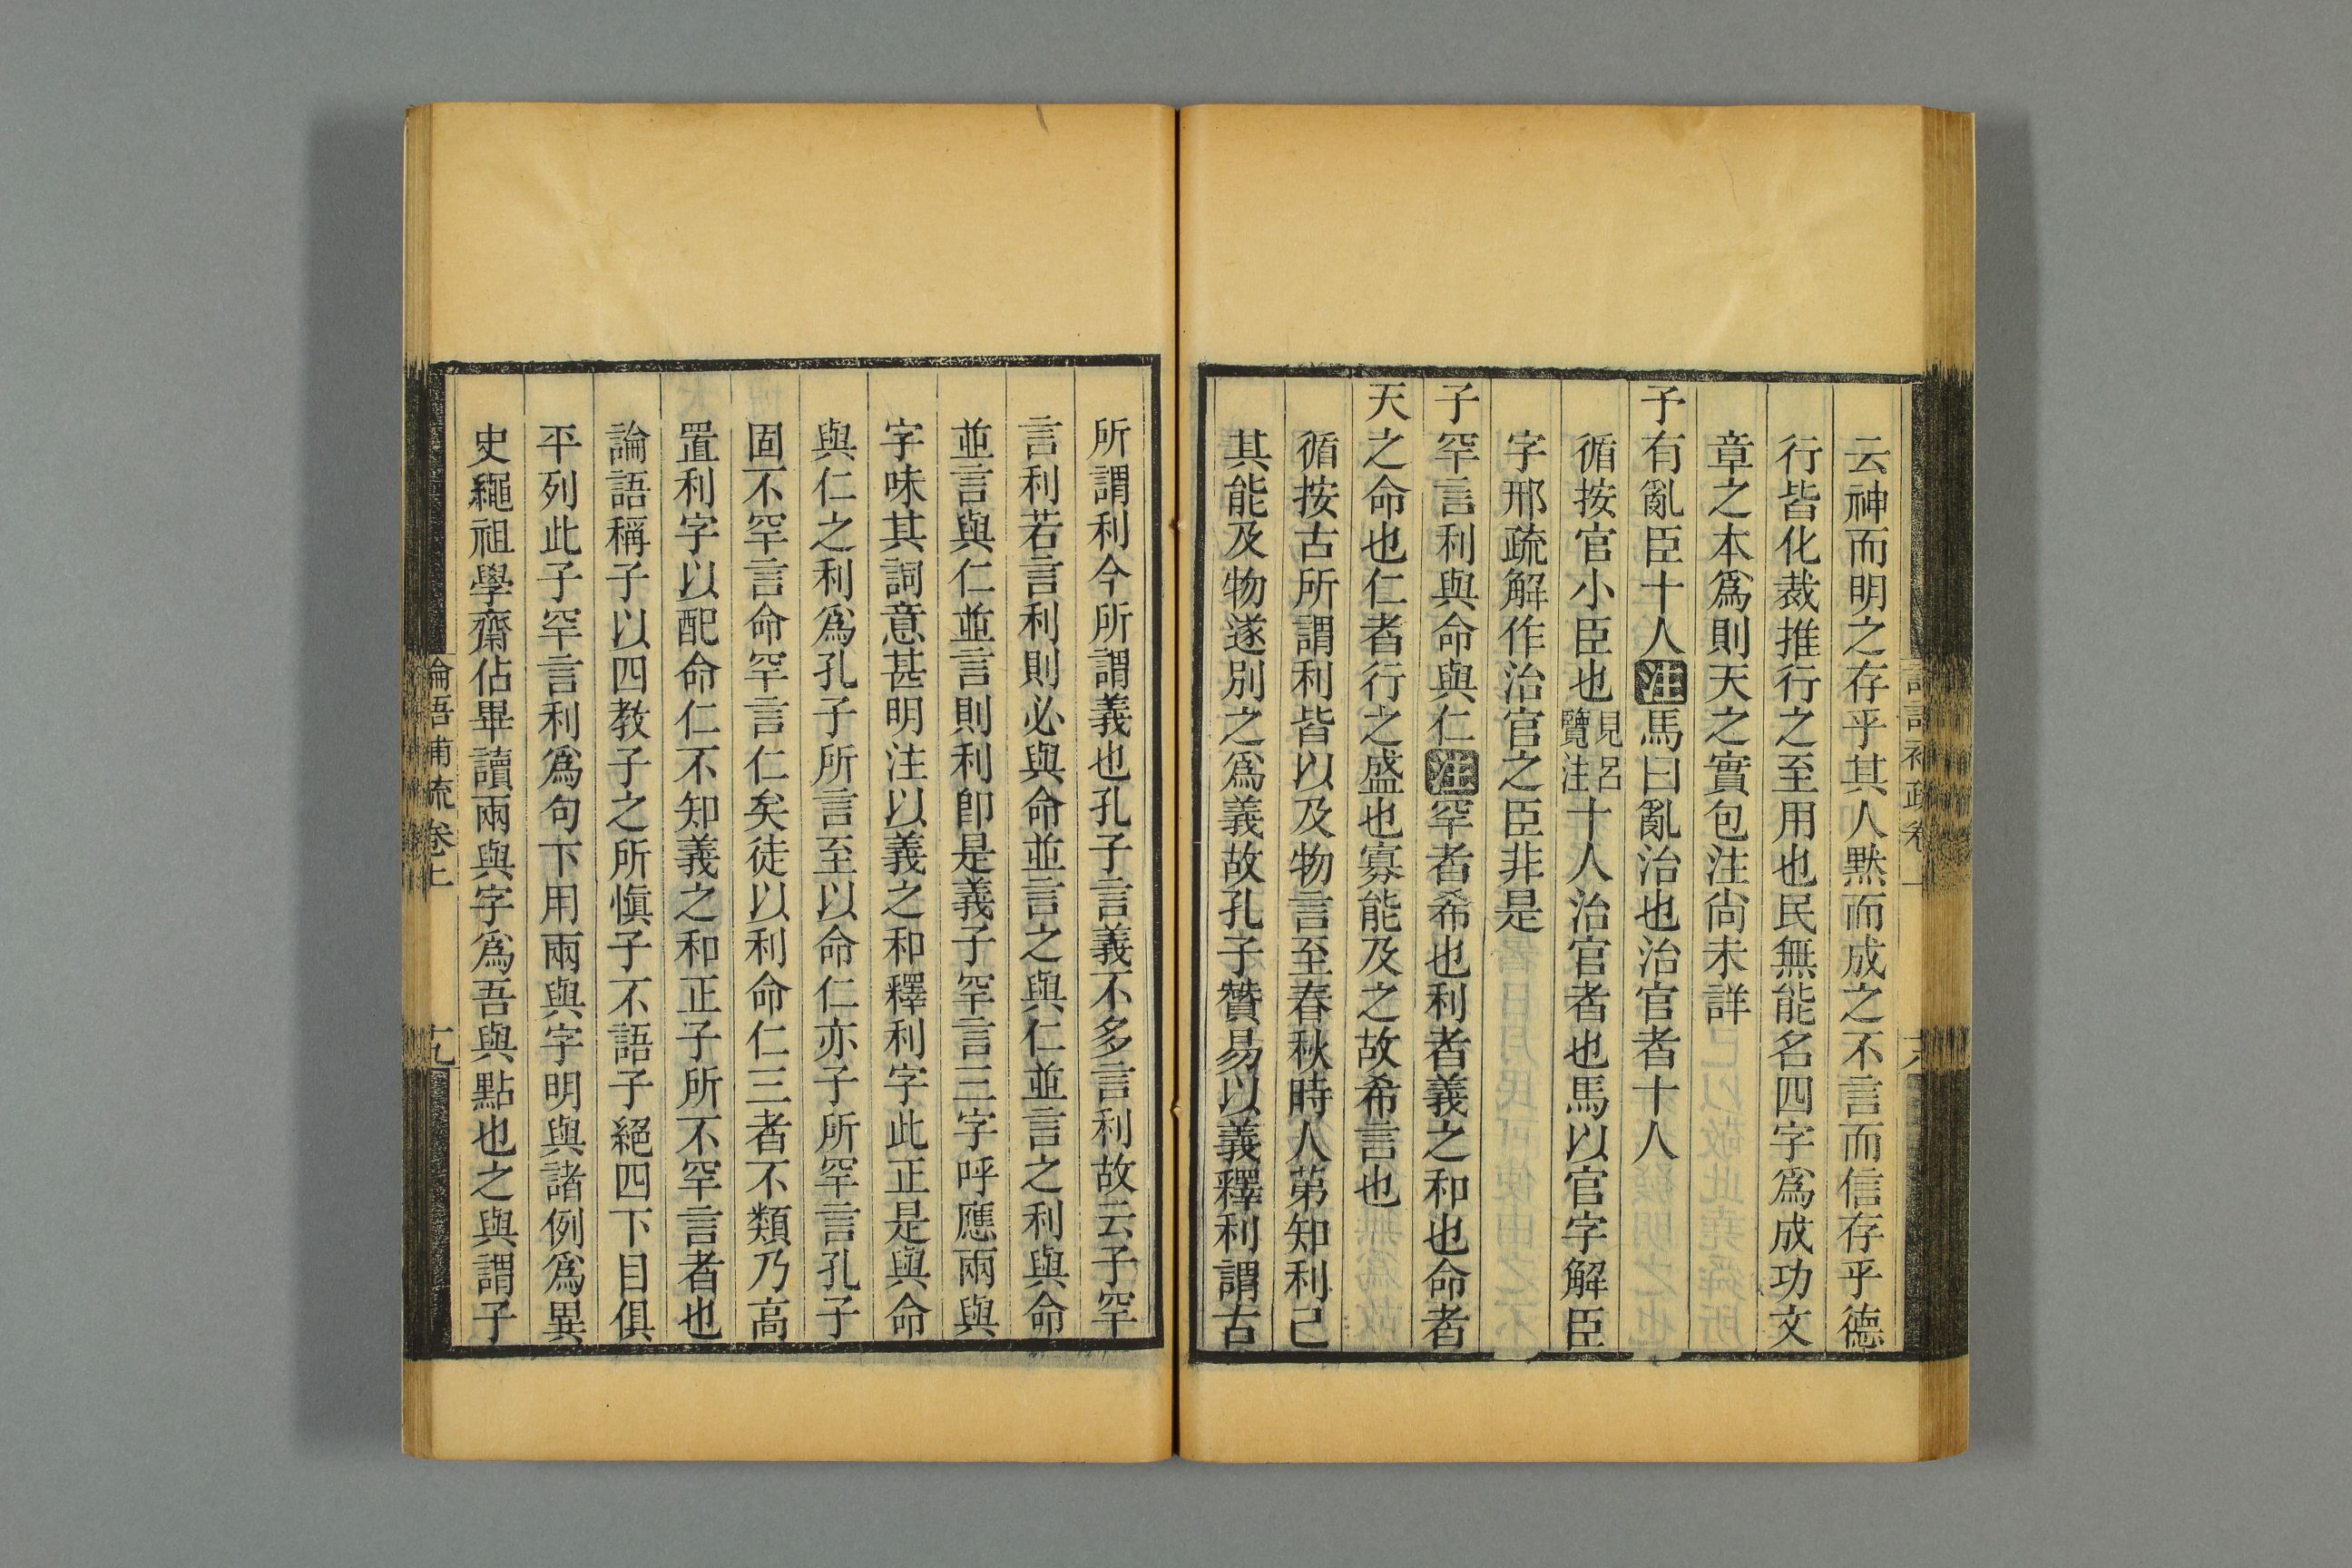 云神而明之存乎其人黙而成之不言而信存乎德
行皆化裁推行之至用也民無能名四字爲成功文
章之本爲則天之實包注尙未詳
予有亂臣十人注馬曰亂治也治官者十人
循按官小臣也見呂覽注十人治官者也馬以官字解臣
字邢疏解作治官之臣非是
子罕言利與命與仁注罕者希也利者義之和也命者
天之命也仁者行之盛也寡能及之故希言也
循按古所謂利皆以及物言至春秋時人第知利己
其能及物遂別之爲義故孔子贊易以義釋利謂古
所謂利今所謂義也孔子言義不多言利故云子罕
言利若言利則必與命並言之與仁並言之利與命
並言與仁並言則利卽是義子罕言三字呼應兩與
字味其詞意甚明注以義之和釋利字此正是與命
與仁之利爲孔子所言至以命仁亦子所罕言孔子
固不罕言命罕言仁矣徒以利命仁三者不類乃高
置利字以配命仁不知義之和正子所不罕言者也
論語稱子以四教子之所愼子不語子絕四下目俱
平列此子罕言利爲句下用兩與字明與諸例爲異
史繩祖學齋佔畢讀兩與字爲吾與點也之與謂子
論語補疏卷上
十九